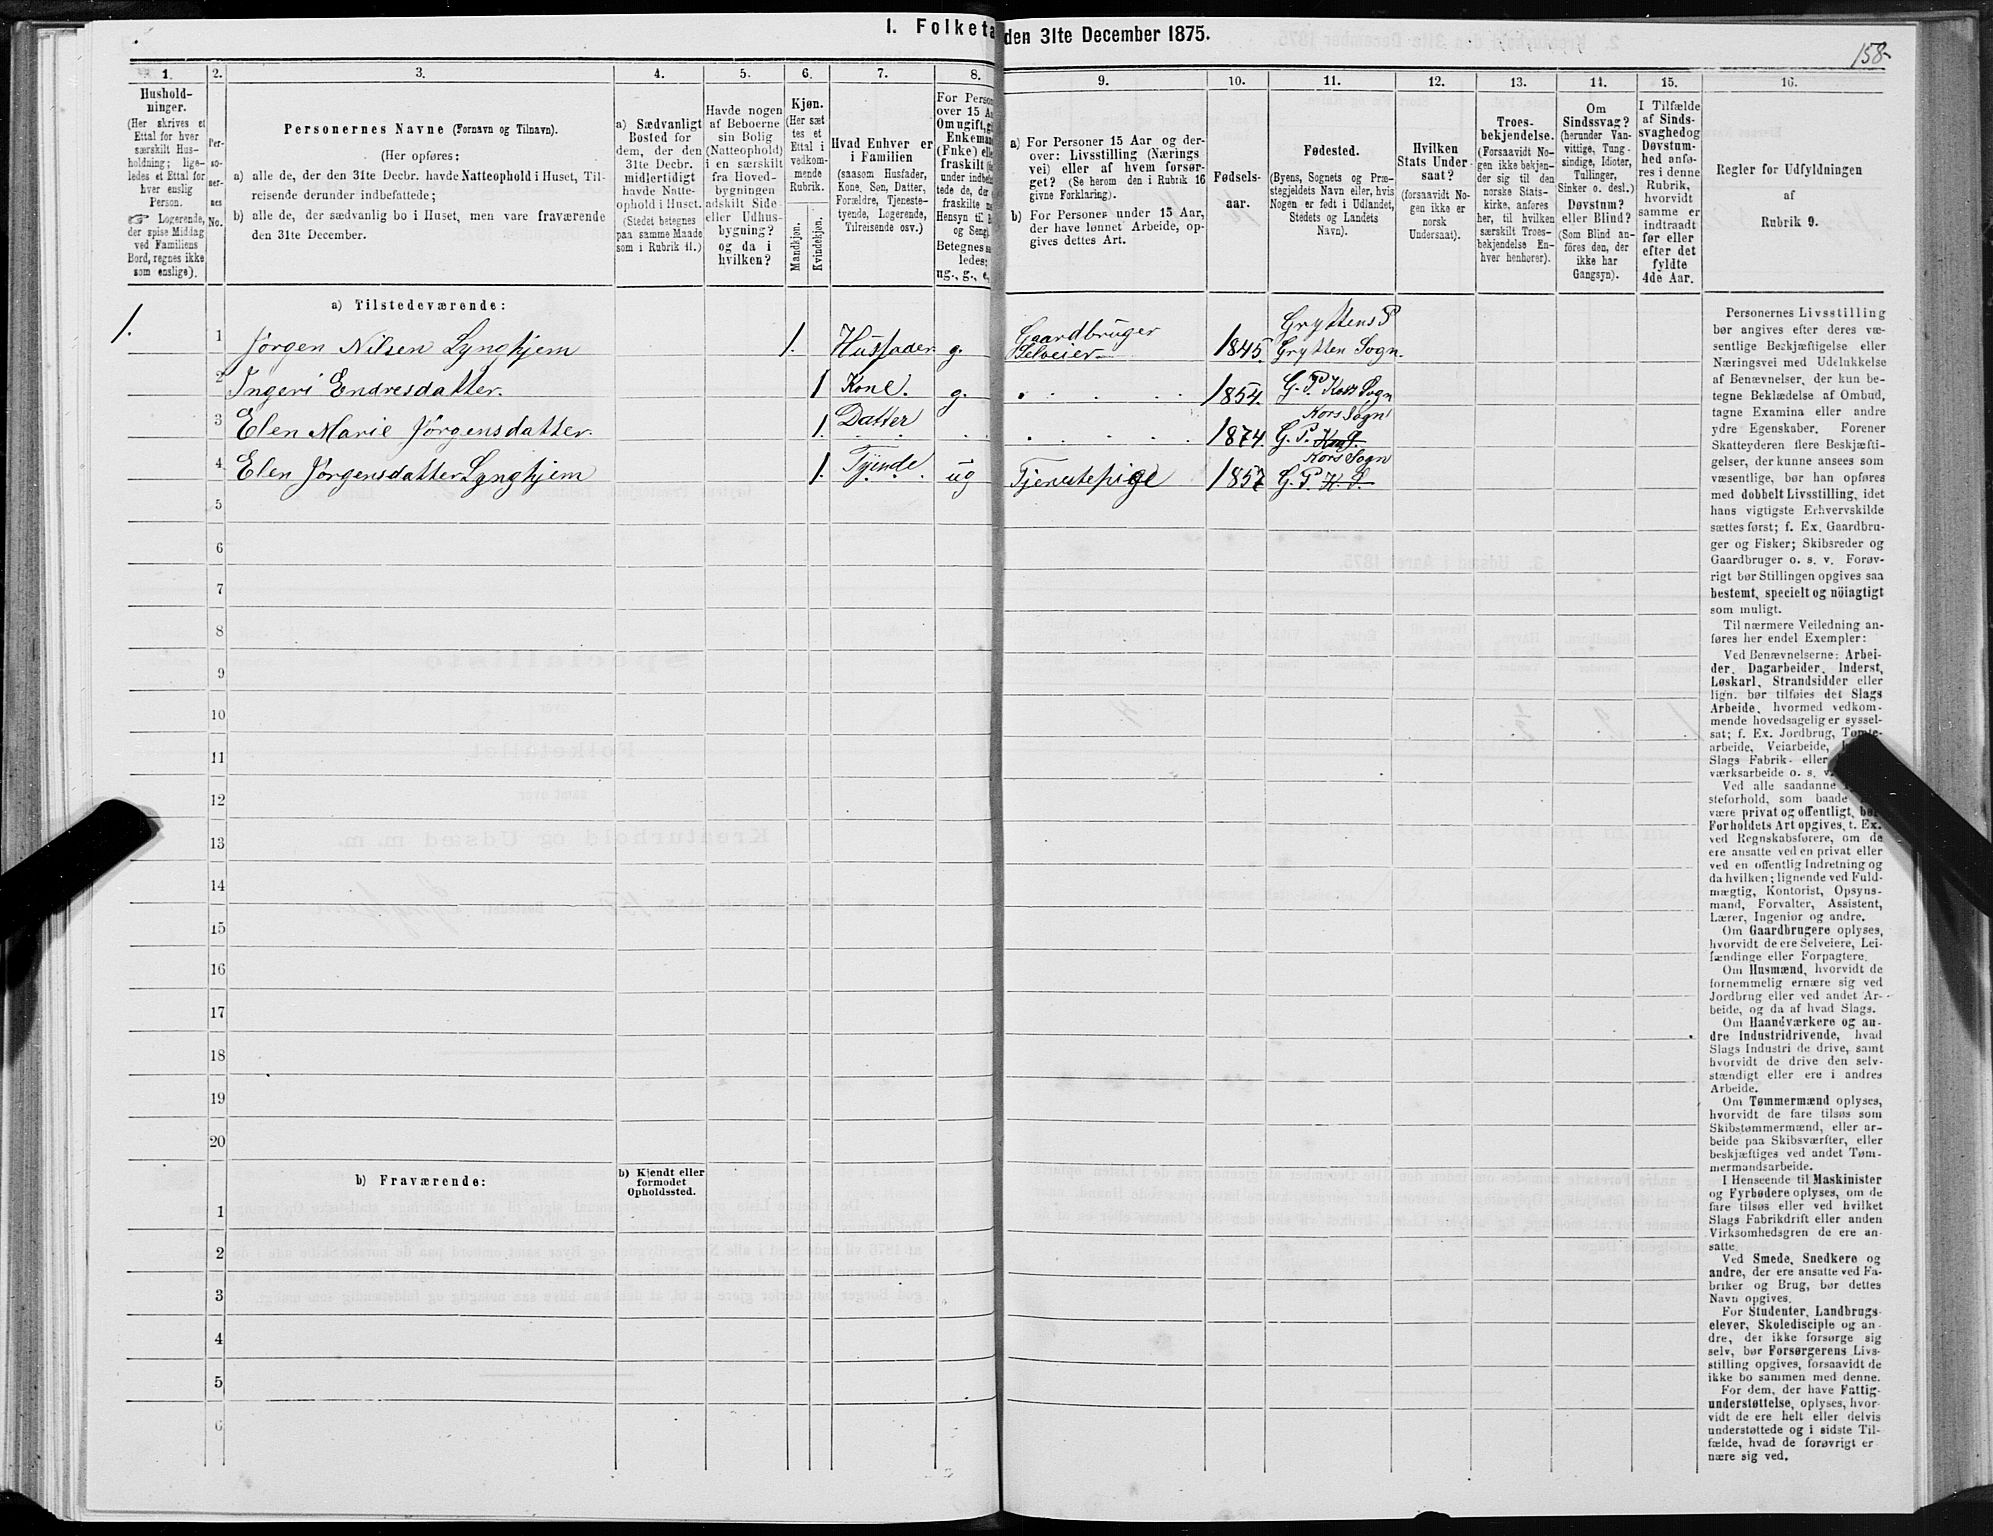 I. Folketa den 31te December 1875.
158
1.
Hushold-
ninger.
(Her skrives et
Ettal for hver
særskilt Hus-
holdning; lige-
ledes et Ettal for
hver enslig
Person.
☞ Logerende,
der spise Middag
ved Familiens
Bord, regnes ikke
som enslige).
2.
Per-
so-
ner-
nes
No.
3.
Personernes Navne (Fornavn og Tilnavn).
(Her opføres:
a) alle de, der den 31te Decbr. havde Natteophold i Huset, Til-
reisende derunder indbefattede;
b) alle de, der sædvanlig bo i Huset, men vare fraværende
den 31te December.
4.
a) Sædvanligt
Bosted for
dem, der den
31te Decbr.
midlertidigt
havde Natte-
ophold i Huset.
(Stedet betegnes
paa samme Maade
som i Rubrik 11.)
5.
Havde nogen
af Beboerne
sin Bolig
(Natteophold)
i en særskilt
fra Hoved-
bygningen
adskilt Side-
eller Udhus-
bygning?
og da i
hvilken?
6.
Kjøn.
(Her sæt
tes et
Ettal i
vedkom-
mende
Rubrik.
Mandkjøn.
Kvindekjøn.
7.
Hvad Enhver er
i Familien
(saasom Husfader,
Kone, Søn, Datter,
Forældre, Tjeneste-
tyende, Logerende,
Tilreisende osv.)
8.
For Person
over 15 Aa
Om ugift, gi
Enkeman
(Enke) elle
fraskilt (
under indbe
tede de, der
fraskilte
Hensyn til B
og Seng)
Betegnes sa
ledes:
ug., g., e.
9.
a) For Personer 15 Aar og der-
over: Livsstilling (Nærings
vei) eller af hvem forsør-
get? (Se herom den i Rubrik 16
givne Forklaring).
b) For Personer under 15 Aar,
der have lønnet Arbeide, op-
gives dettes Art.
10.
Fødsels-
aar.
11.
Fødested.
(Byens, Sognets og Præ-
stegjeldets Navn eller, hvis
Nogen er født i Udlandet,
Stedets og Landets
Navn).
12.
Hvilken
Stats Under-
saat?
(forsaavidt No-
gen ikke er
norsk
Undersaat).
13.
Troes-
bekjendelse.
(Forsaavidt No-
gen ikke bekjen-
der sig til den
norske Stats-
kirke, anføres
her, til hvilken
særskilt Troes-
bekjendelse En-
hver henhører).
14.
Om
Sindssvag?
(herunder Van-
vittige, Tung-
sindige, Idioter,
Tullinger,
Sinker o. desl.)
Døvstum?
eller Blind?
(Som Blind an-
føres den, der
ikke har
Gangsyn).
15.
I Tilfælde
af Sinds-
svaghed og
Døvstum-
hed anfø-
res i denne
Rubrik,
hvorvidt
samme er
indtraadt
før eller
efter det
fyldte
4de Aar.
16.
Regler for Udfyldningen
af
Rubrik 9.
a) Tilstedeværende:
1. 1 Jørgen Nilsen Lynghjem 1. Husfader g. Gaardbruger Selveier 1845. Gryttens P Grytten Sogn.
2 Ingeri Endresdatter. 1 Kone. g. 1854. G. P. Kors Sogn
3 Elen Marie Jørgensdatter. 1. Datter 1874. G. P. Kors Sogn
4. Elen Jørgensdatter Lynghjem 1. Tyende ug Tjenestepige 1857 G. P. K. S. Kors Sogn
5
6
7
8
9
10
11
12
13
14
15
16
17
18
19
20
b) Fraværende:
b) Kjendt eller
formodet
Opholdssted.
1
2
3
4
5
6
Personernes Livsstilling
bør angives efter deres væ-
sentlige Beskjæftigelse eller
Næringsvei med Udelukkelse
af Benævnelser, der kun be-
tegne Beklædelse af Ombud,
tagne Examina eller andre
ydre Egenskaber. Forener
Skatteyderen flere Beskjæfti-
gelser, der kunne ansees som
væsentlige, bør han opføres
med dobbelt Livsstilling, idet
hans vigtigste Erhvervskilde
sættes først; f. Ex. Gaardbru-
ger og Fisker; Skibsreder og
Gaardbruger o. s. v. Forøv-
rigt bør Stillingen opgives saa
bestemt, specielt og nöiagtigt
som muligt.
Til nærmere Veiledning an-
føres her endel Exempler:
Ved Benævnelserne: Arbei-
der, Dagarbeider, Inderst,
Løskarl, Strandsidder eller
lign. bør tilføies det Slags
Arbeide, hvormed vedkom-
mende hovedsagelig er syssel-
sat; f. Ex. Jordbrug, Tømte-
arbeide, Veiarbeide,
Slags Fabrik- eller
værksarbeide o. s. v.
Ved alle saadanne
steforhold, som baade
være privat og offentligt, bør
Forholdets Art opgives, t. Ex.
ved Regnskabsførere, om de
ere ansatte ved en privat eller
ved en offentlig Indretning og
da hvilken; lignende ved Fuld-
mægtig, Kontorist, Opsyns-
mand, Forvalter, Assistent,
Lærer, Ingeniør og andre.
Om Gaardbrugere oplyses,
hvorvidt de ere Selveiere, Lei-
lændinge eller Forpagtere.
Om Husmænd, hvorvidt de
fornemmelig ernære sig ved
Jordbrug eller ved andet Ar-
beide, og da af hvad Slags.
Om Haandværkere og an-
dre Industridrivende, hvad
Slags Industri de drive, samt
hvorvidt de drive den selv-
stændigt eller ere i andres
Arbeide.
Om Tømmermænd oplyses,
hvorvidt de fare tilsøs som
Skibstømmermænd, eller ar-
beide paa Skibsværfter, eller
beskjæftiges ved andet Tøm-
mermandsarbeide.
I Henseende til Maskinister
og Fyrbødere oplyses, om de
fare tilsøs eller ved hvilket
Slags Fabrikdrift eller anden
Virksomhedsgren de ere an-
satte.
Ved Smede, Snedkere og
andre, der ere ansatte ved Fa-
briker og Brug, bør dettes
Navn opgives.
For Studenter, Landbrugs-
elever, Skoledisciple og an-
dre, der ikke forsørge sig
selv, bør Forsørgerens Livs-
stilling opgives, forsaavidt de
ikke bo sammen med denne.
For dem, der have Fattig-
understøttelse, oplyses, hvor-
vidt de ere helt eller delvis
understøttede og i sidste Til-
fælde, hvad de forøvrigt er
nære sig ved.